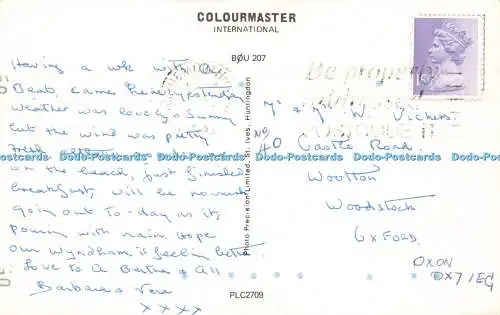 COLOURMASTER
INTERNATIONAL
BØU 207
Having a wk with
Beat, came here yesterday
weather was lovely & Sunny
but the wind was pretty
fresh
on the beach, just finished
breakfast, will be no much
going out to-day as its
pouring with rain. Hope
our Wyndham is feeling better
Love to A Bertha & All
Barbara & Vera
xxxx
Be properly
Mr & Mrs W. Vickers
No 40 Castle Road
Wootton
Woodstock
OXFORD.
OXON
OX7 1EG
Photo Precision Limited, St. Ives, Huntingdon
PLC2709
Dodo-Postcards.com Dodo-Postcards.com Dodo-Postcards.com Dodo-Postcards.com